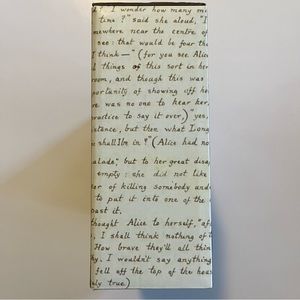 ? I wonder how many m
time?" said she aloud, "I
mewhere near the centre of
see: that would be four the
I think—" (for you see Alice
l things of this sort in her
room, and though this was
portunity of showing off he
re was no one to hear her,
practice to say it over,) "yes,
stance, but then what Long
shall I be in?" (Alice had no
alade," but to her great disap
empty: she did not like
er of killing somebody und
to put it into one of the
past it.
thought Alice to herself, "af
, I shall think nothing of t
How brave they'll all thin
hy, I wouldn't say anything
fell off the top of the hous
ly true.)